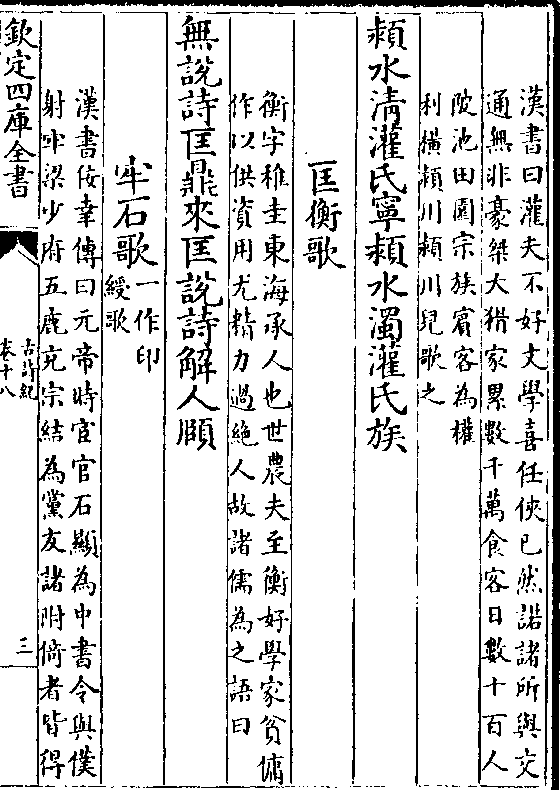 漢書曰灌夫不好文學喜任俠已然諾諸所與交
通無非豪桀大猾家累數千萬食客日數十百人
陂池田園宗族賓客為權
利橫潁川潁川兒歌之
潁水清灌氏寧潁水濁灌氏族
匡衡歌
衡字稚圭東海承人也世農夫至衡好學家貧傭
作以供資用尤精力過絶人故諸儒為之語曰
無說詩匡鼎來匡說詩解人頤
牢石歌
一作印
綬歌
漢書佞幸傳曰元帝時宦官石顯為中書令與僕
射牢梁少府五鹿充宗結為黨友諸附倚者皆得
欽定四庫全書
古詩紀
卷十八
三